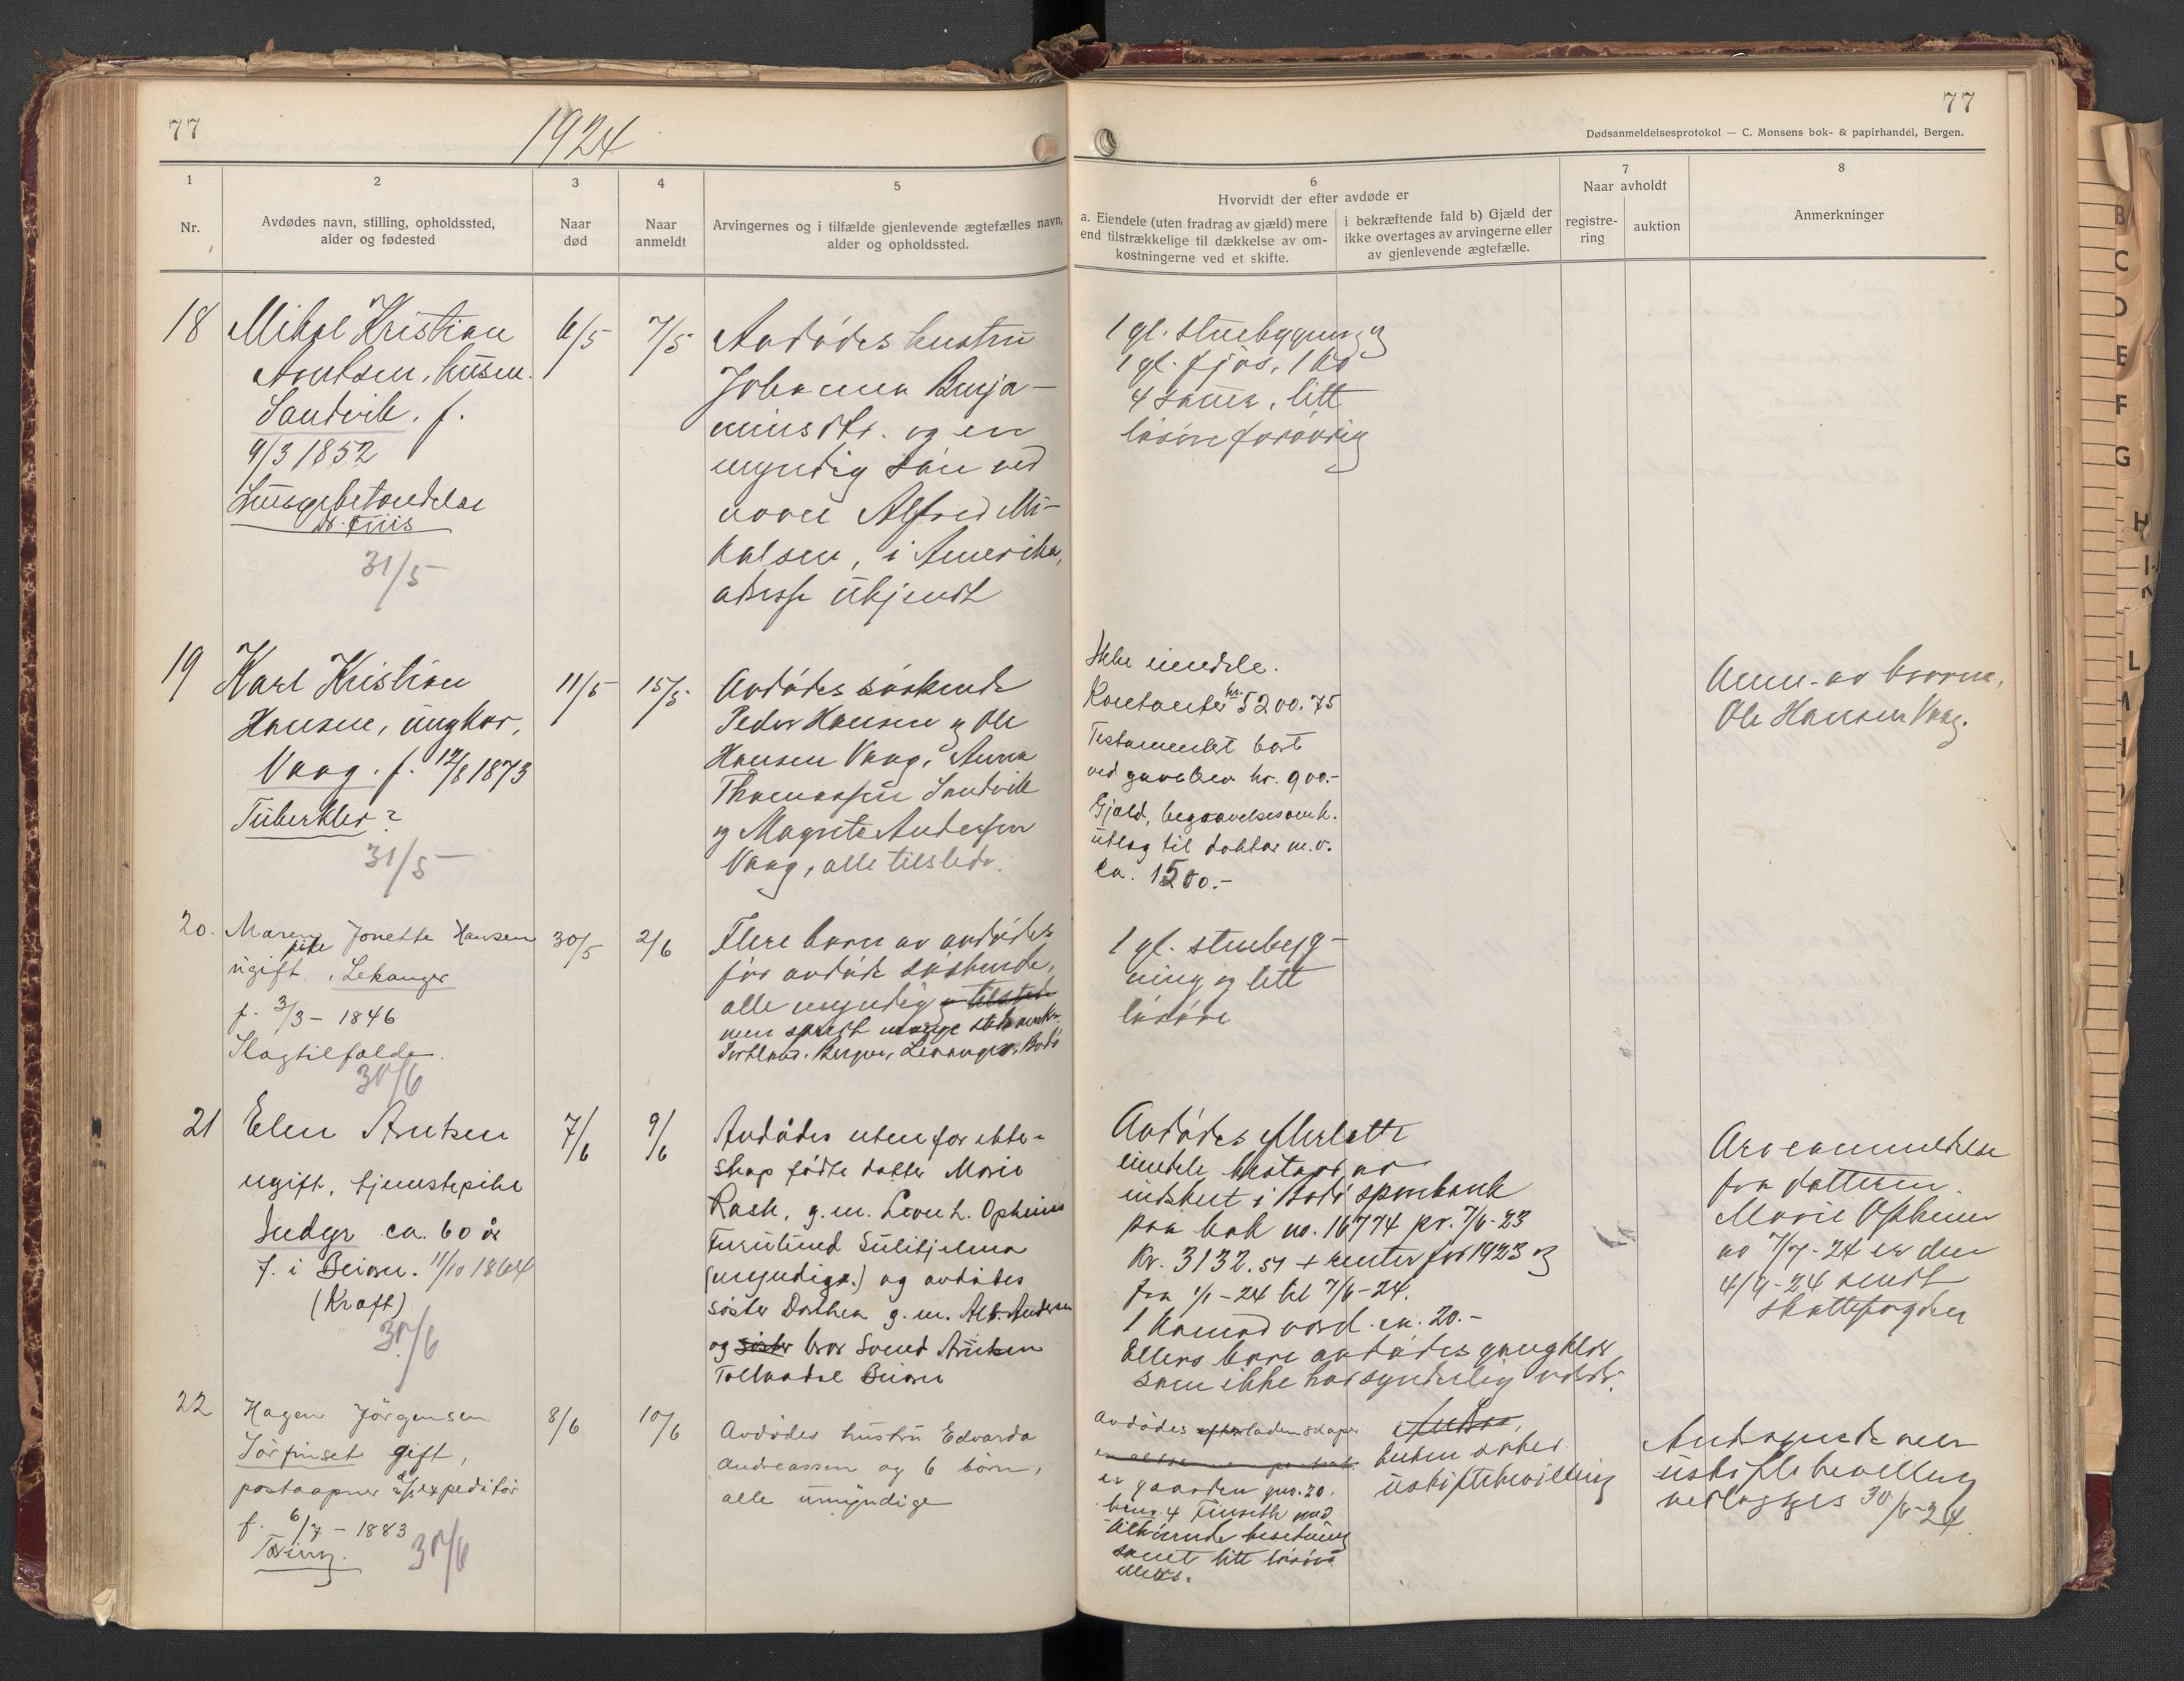 77
1924
77
Dødsanmeldelsesprotokol — C. Monsens bok- & papirhandel, Bergen.
1
Nr.
2
Avdødes navn, stilling, opholdssted,
alder og fødested
3
Naar
død
4
Naar
anmeldt
5
Arvingernes og i tilfælde gjenlevende ægtefælles navn,
alder og opholdssted.
6
Hvorvidt der efter avdøde er
a. Eiendele (uten fradrag av gjæld) mere
end tilstrækkelige til dækkelse av om-
kostningerne ved et skifte.
i bekræftende fald b) Gjæld der
ikke overtages av arvingerne eller
av gjenlevende ægtefælle.
7
Naar avholdt
registre-
ring
auktion
8
Anmerkninger
18
Mikal Kristian
Arntsen, husm.
Sandvik. f.
9/3 1852
Lungebetændelse
dr. Friis
31/5
6/5
7/5
Avdødes hustru
Johanna Benja-
minsdtr. og en
myndig søn ved
navn Alfred Mi-
kalsen, i Amerika,
adresse ukjendt
1 gl. stuebygning og
1 gl. fjøs, 1 ko
4 sauer, litt
løsøre forøvrig
19
Karl Kristian
Hansen, ungkar,
Vaag. f. 12/8 1873
Tuberkler?
31/5
11/5
15/5
Avdødes søskende
Peder Hansen og Ole
Hansen Vaag, Anna
Thomassen Sandvik
og Magrete Andersen
Vaag, alle tilstede.
Ikke eiendele.
Kontanter kr. 5200.75
Testamentet bort
ved gavebrev kr. 900.-
Gjæld, begravelsesomk.
utlæg til doktor m.v.
ca. 1500.-
Anm. av broren,
Ole Hansen Vaag.
20.
Maren Jonette Hansen
pike
ugift, Lekanger
f. 3/3 - 1846
Slagtilfælde.
30/6
30/5
2/6
Flere barn av avdødes
før avdøde søskende,
alle myndig og tilstede
men spredt mange steder
Bergen, Lekanger, Bodø
1 gl. stuebyg-
ning og litt
løsøre
21
Elen Arntsen
ugift, tjenestepike
Indyr ca. 60 år
f. i Beiarn. 11/10 1864
(Kræft)
30/6
7/6
9/6
Avdødes utenfor ekte-
skap fødte datter Marie
Rask, g.m. Leon L. Opheim
Furulund Sulitjelma
(myndige.) og avdødes
søster Dorthea g.m. Alb. Andersen
og søster bror Svend Arntsen
Tollaadal Beiarn
Avdødes efterlatte
eiendele bestaar av
indskut i Bodø sparebank
paa bok no. 16774 pr. 7/6-23
Kr. 3132.51 + renter for 1923 og
fra 1/1-24 til 7/6-24.
1 komod værd. ca. 20.-
Ellers bare avdødes gangklær
som ikke har synderlig værdi.
Arveanmeldelse
fra datteren
Marie Opheim
av 7/7-24 er den
4/9-24 sendt
skattefogden
22
Hagen Jørgensen
Sørfinset gift,
postaapner & expeditør
f. 6/7 - 1883
Tæring.
30/6
8/6
10/6
Avdødes hustru Edvarda
Andreassen og 6 børn,
alle umyndige
Avdødes efterladenskaper
er gaarden gno. 20.
bno. 4 Finseth med
tilhørende besetning
samt litt løsøre
ellers.
Enken søker
uskiftebevilling
Andragende om
uskiftebevilling
vedlægges 30/6-24
B
C
D
E
F
G
H
L